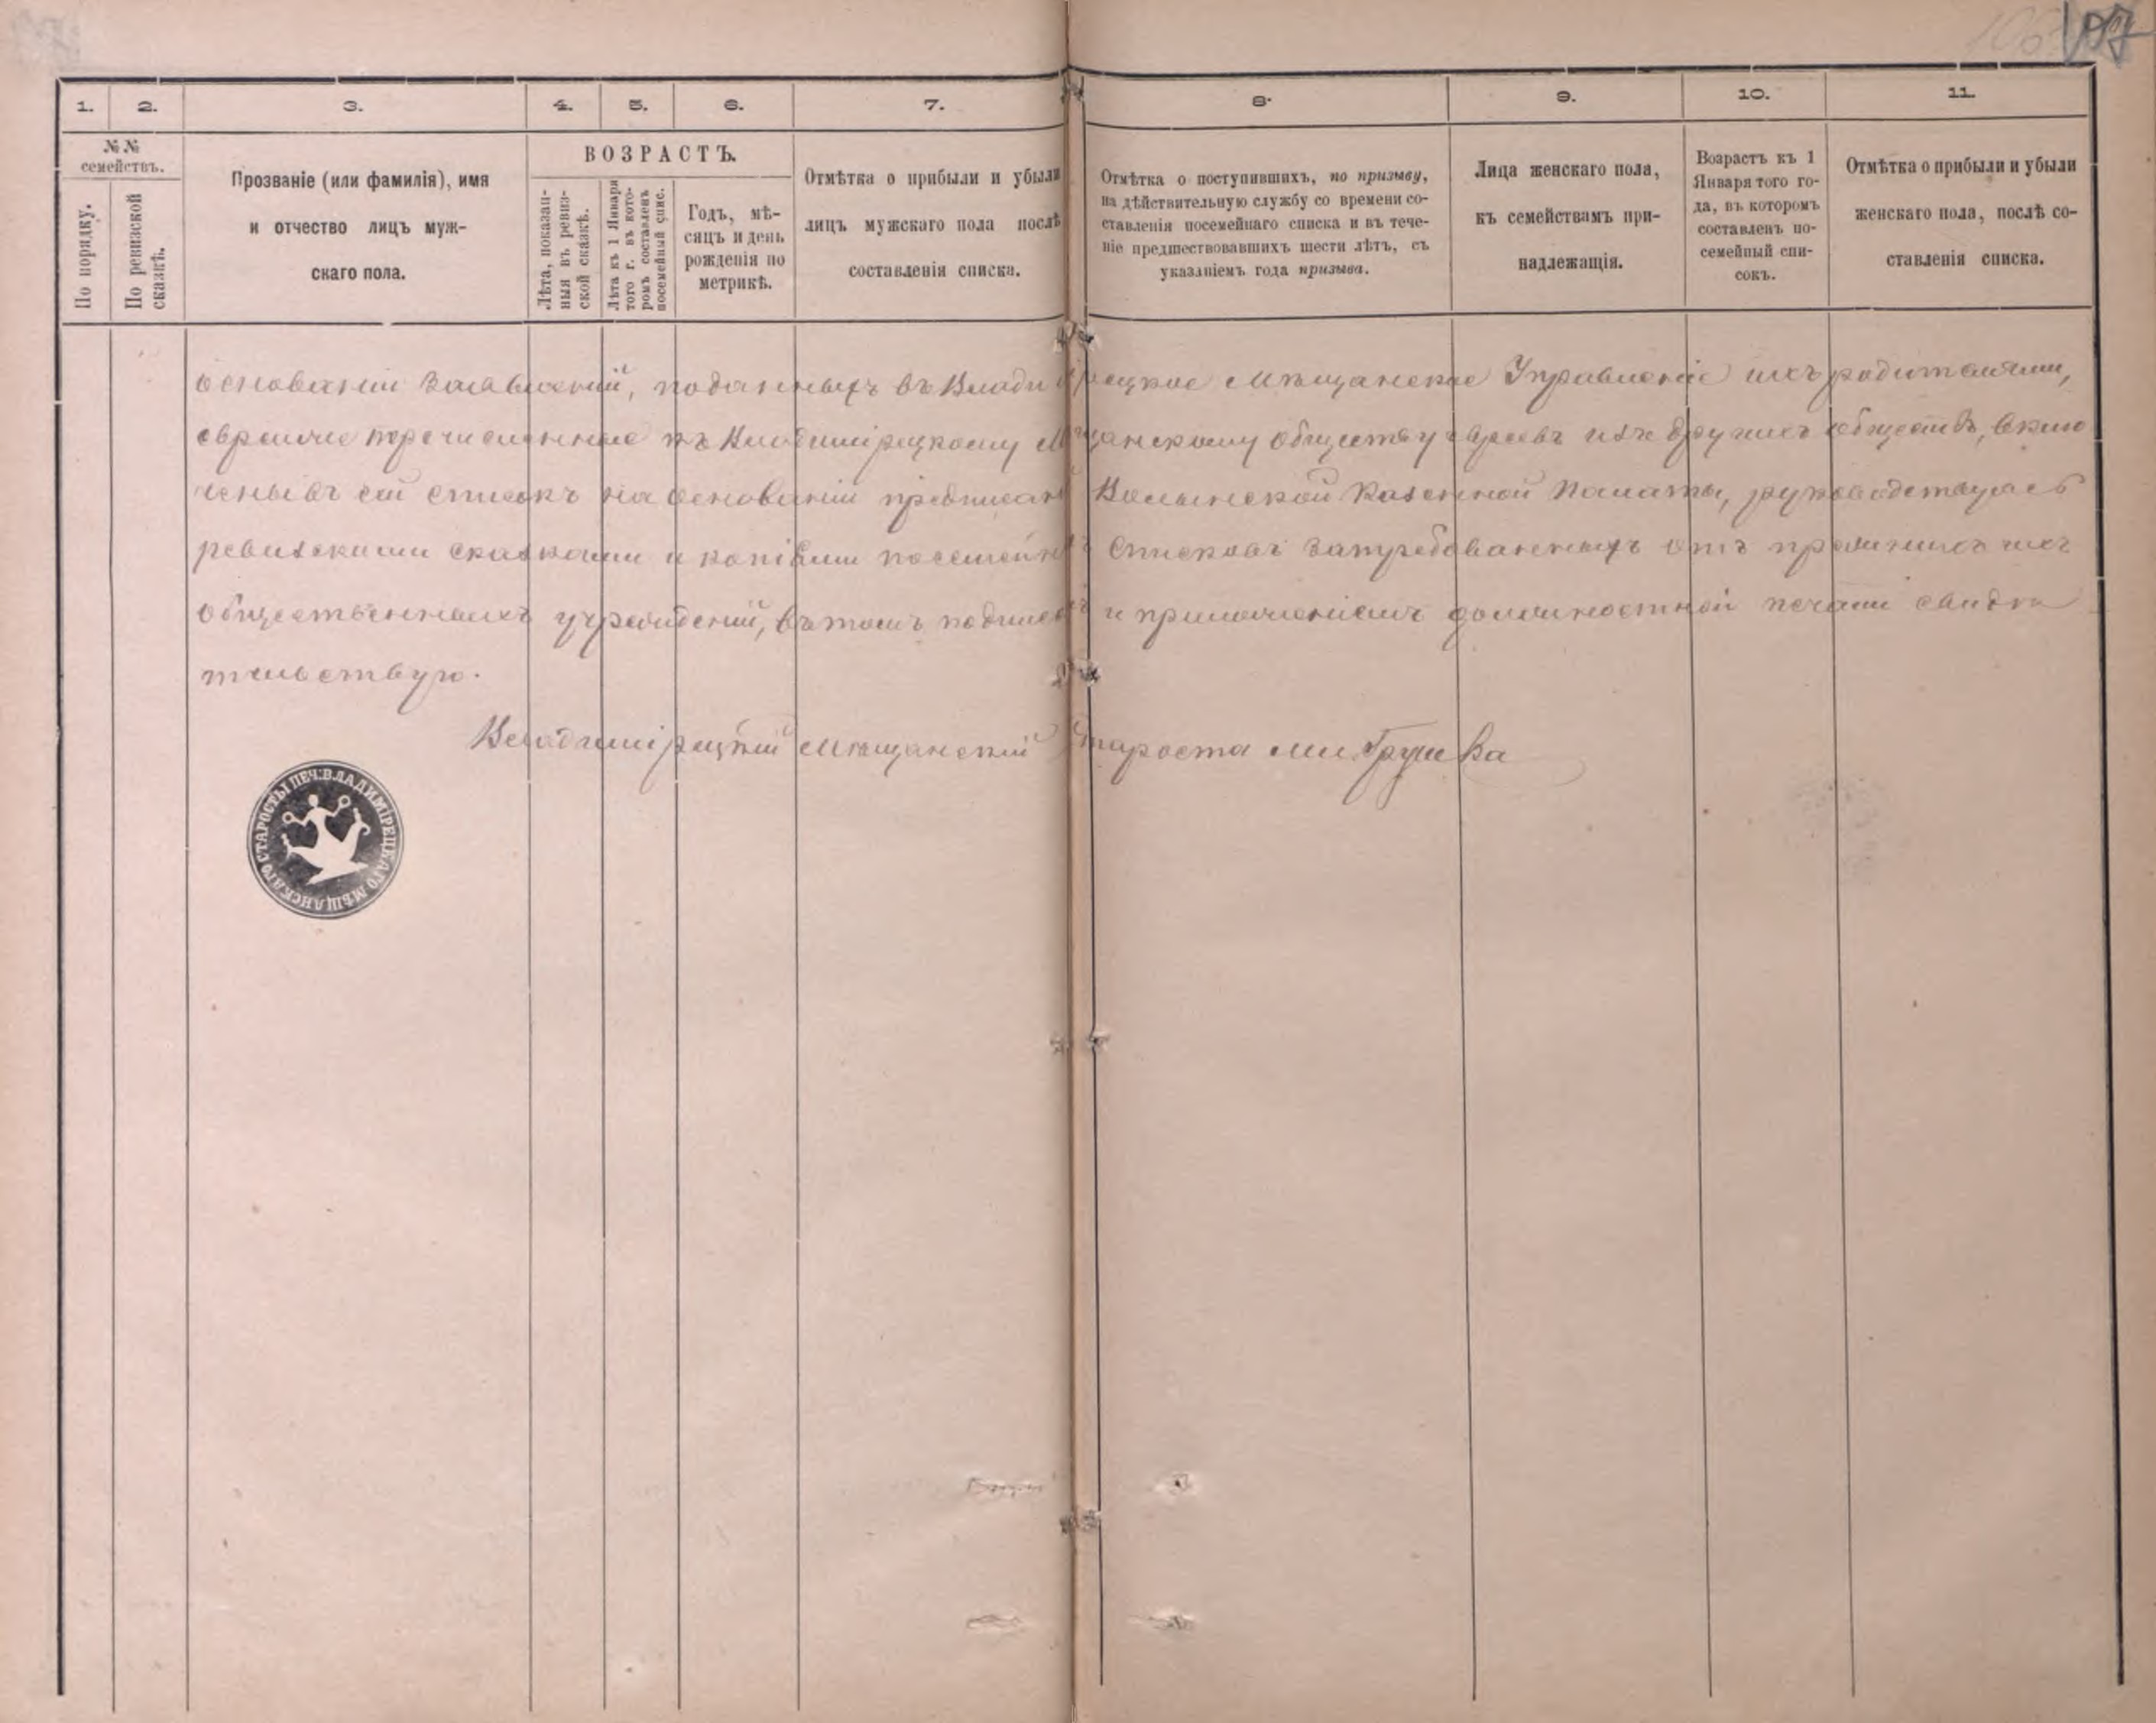 107
1. 2. 3. 4. 5. 6. 7. 8. 9. 10. 11.
№№ семействъ.
По порядку.
По ревизской сказкѣ.
Прозваніе (или фамилія), имя
и отчество лицъ муж-
скаго пола.
ВОЗРАСТЪ.
Лѣта, показан-
ныя въ ревиз-
ской сказкѣ.
Лѣта къ 1 Января
того г. въ кото-
ромъ составленъ
посемейный спис.
Годъ, мѣ-
сяцъ и день
рожденія по
метрикѣ.
Отмѣтка о прибыли и убыли
лицъ мужскаго пола послѣ
составленія списка.
Отмѣтка о поступившихъ, по призыву,
на дѣйствительную службу со времени со-
ставленія посемейнаго списка и въ тече-
ніе предшествовавшихъ шести лѣтъ, съ
указаніемъ года призыва.
Лица женскаго пола,
къ семействамъ при-
надлежащія.
Возрастъ къ 1
Января того го-
да, въ которомъ
составленъ по-
семейный спи-
сокъ.
Отмѣтка о прибыли и убыли
женскаго пола, послѣ со-
ставленія списка.
основаніи заявленій, поданныхъ въ Владимірецкое Мѣщанское Управленіе ихъ родителями,
евреиже перечисленные къ Владимірецкому Мѣщанскому обществу евреевъ изъ другихъ обществъ, вклю
чены въ сей списокъ на основаніи предписан Волынской Казенной Палаты, руководствуясь
ревизскими сказками и копіями посемейн списковъ затребованныхъ отъ прежнихъ ихъ
общественныхъ учрежденій, въ томъ подписью и приложеніемъ должностной печати свидѣ
тельствую.
Владимірецкій Мѣщанскій Староста
ПЕЧ: ВЛАДИМІРЕЦКАГО МѢЩАНСКАГО СТАРОСТЫ